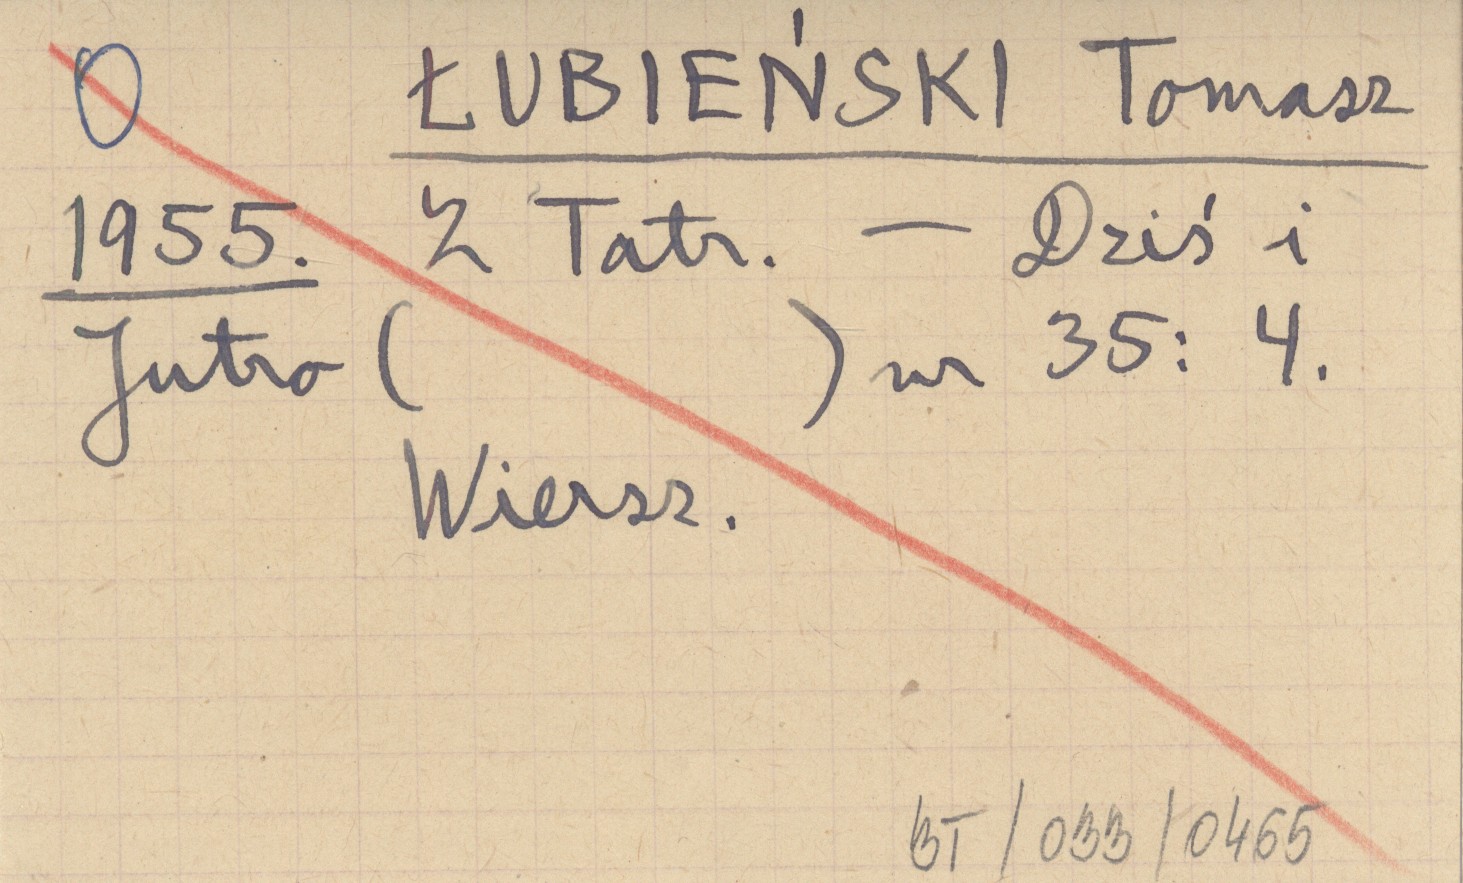 0 ŁUBIEŃSKI Tomasz
1955. Z Tatr. — Dziś i
Jutro ( ) nr 35: 4.
Wiersz.
BT / 033 / 0465